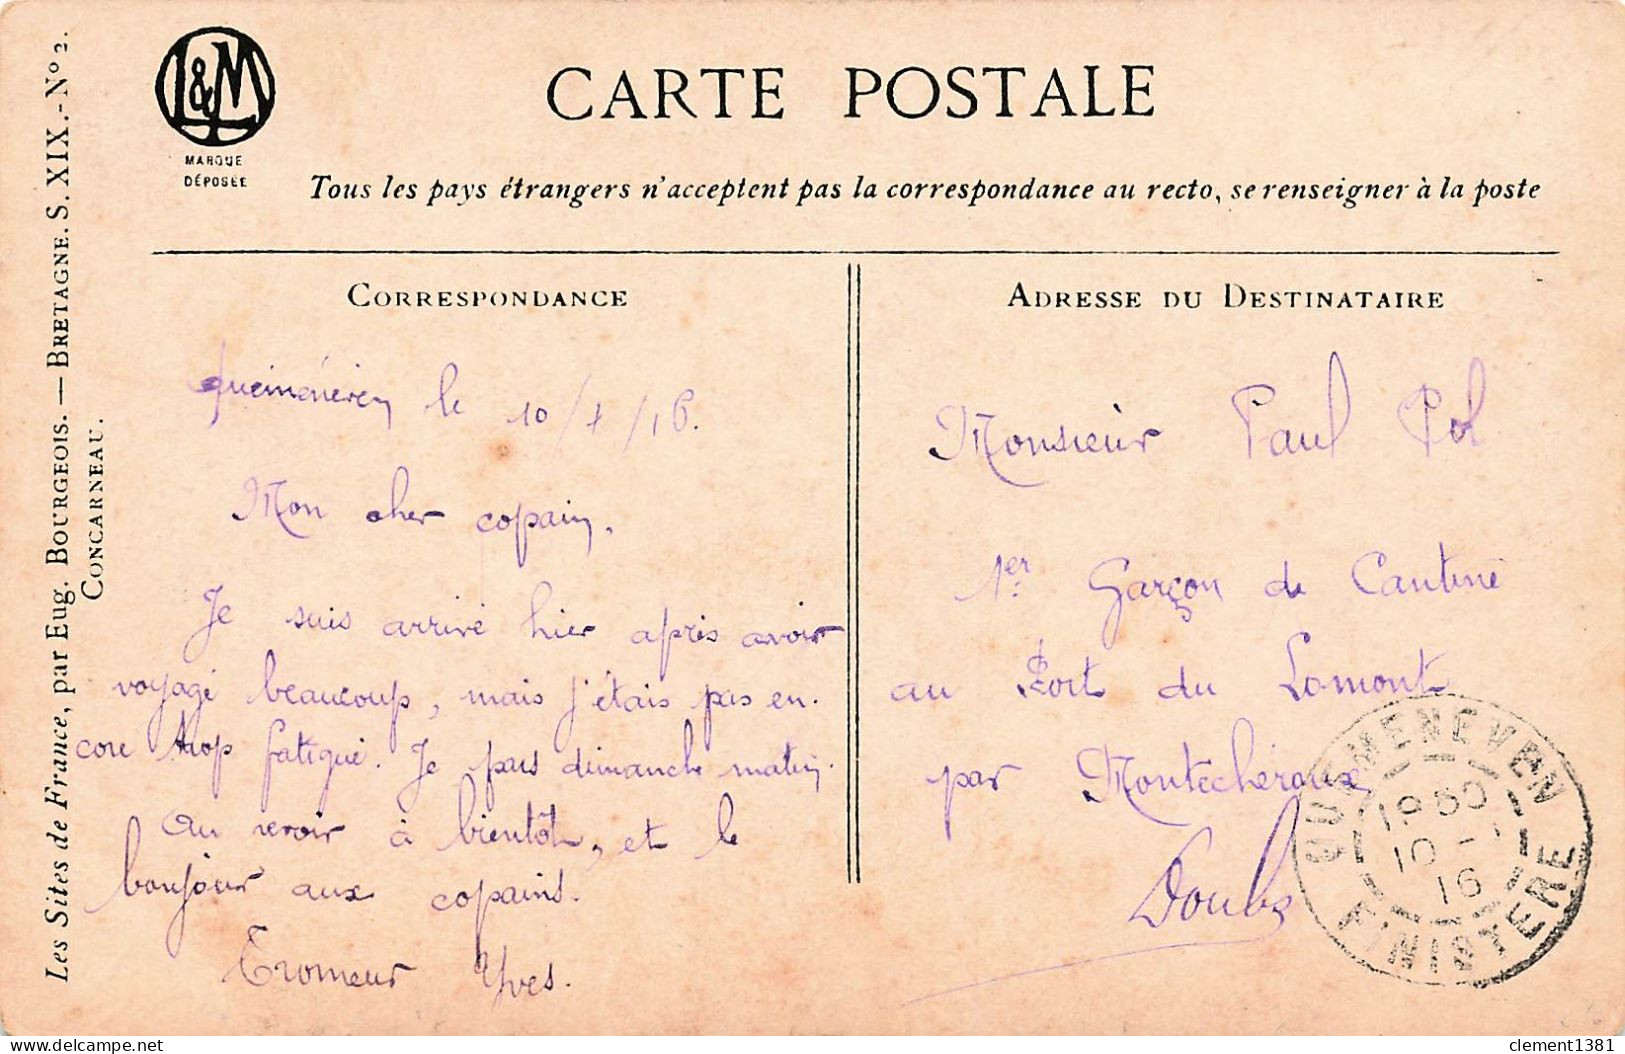 L&M
MARQUE
DÉPOSÉE
CARTE POSTALE
Tous les pays étrangers n'acceptent pas la correspondance au recto, se renseigner à la poste
Les Sites de France, par Eug. BOURGEOIS. — BRETAGNE. S. XIX.-Nº 2.
CONCARNEAU.
CORRESPONDANCE
le 10/1/16.
Mon cher copain,
Je suis arrivé hier après avoir
voyagé beaucoup, mais j'étais pas en-
core trop fatigué. Je pars dimanche matin.
Au revoir à bientôt, et le
bonjour aux copains.
Tromeur Yves.
ADRESSE DU DESTINATAIRE
Monsieur Paul Pol
1er Garçon de Cantine
au Fort du Lomont
par Montécheroux
Doubs
QUEMENEVEN
10-1
16
FINISTERE
clement1381